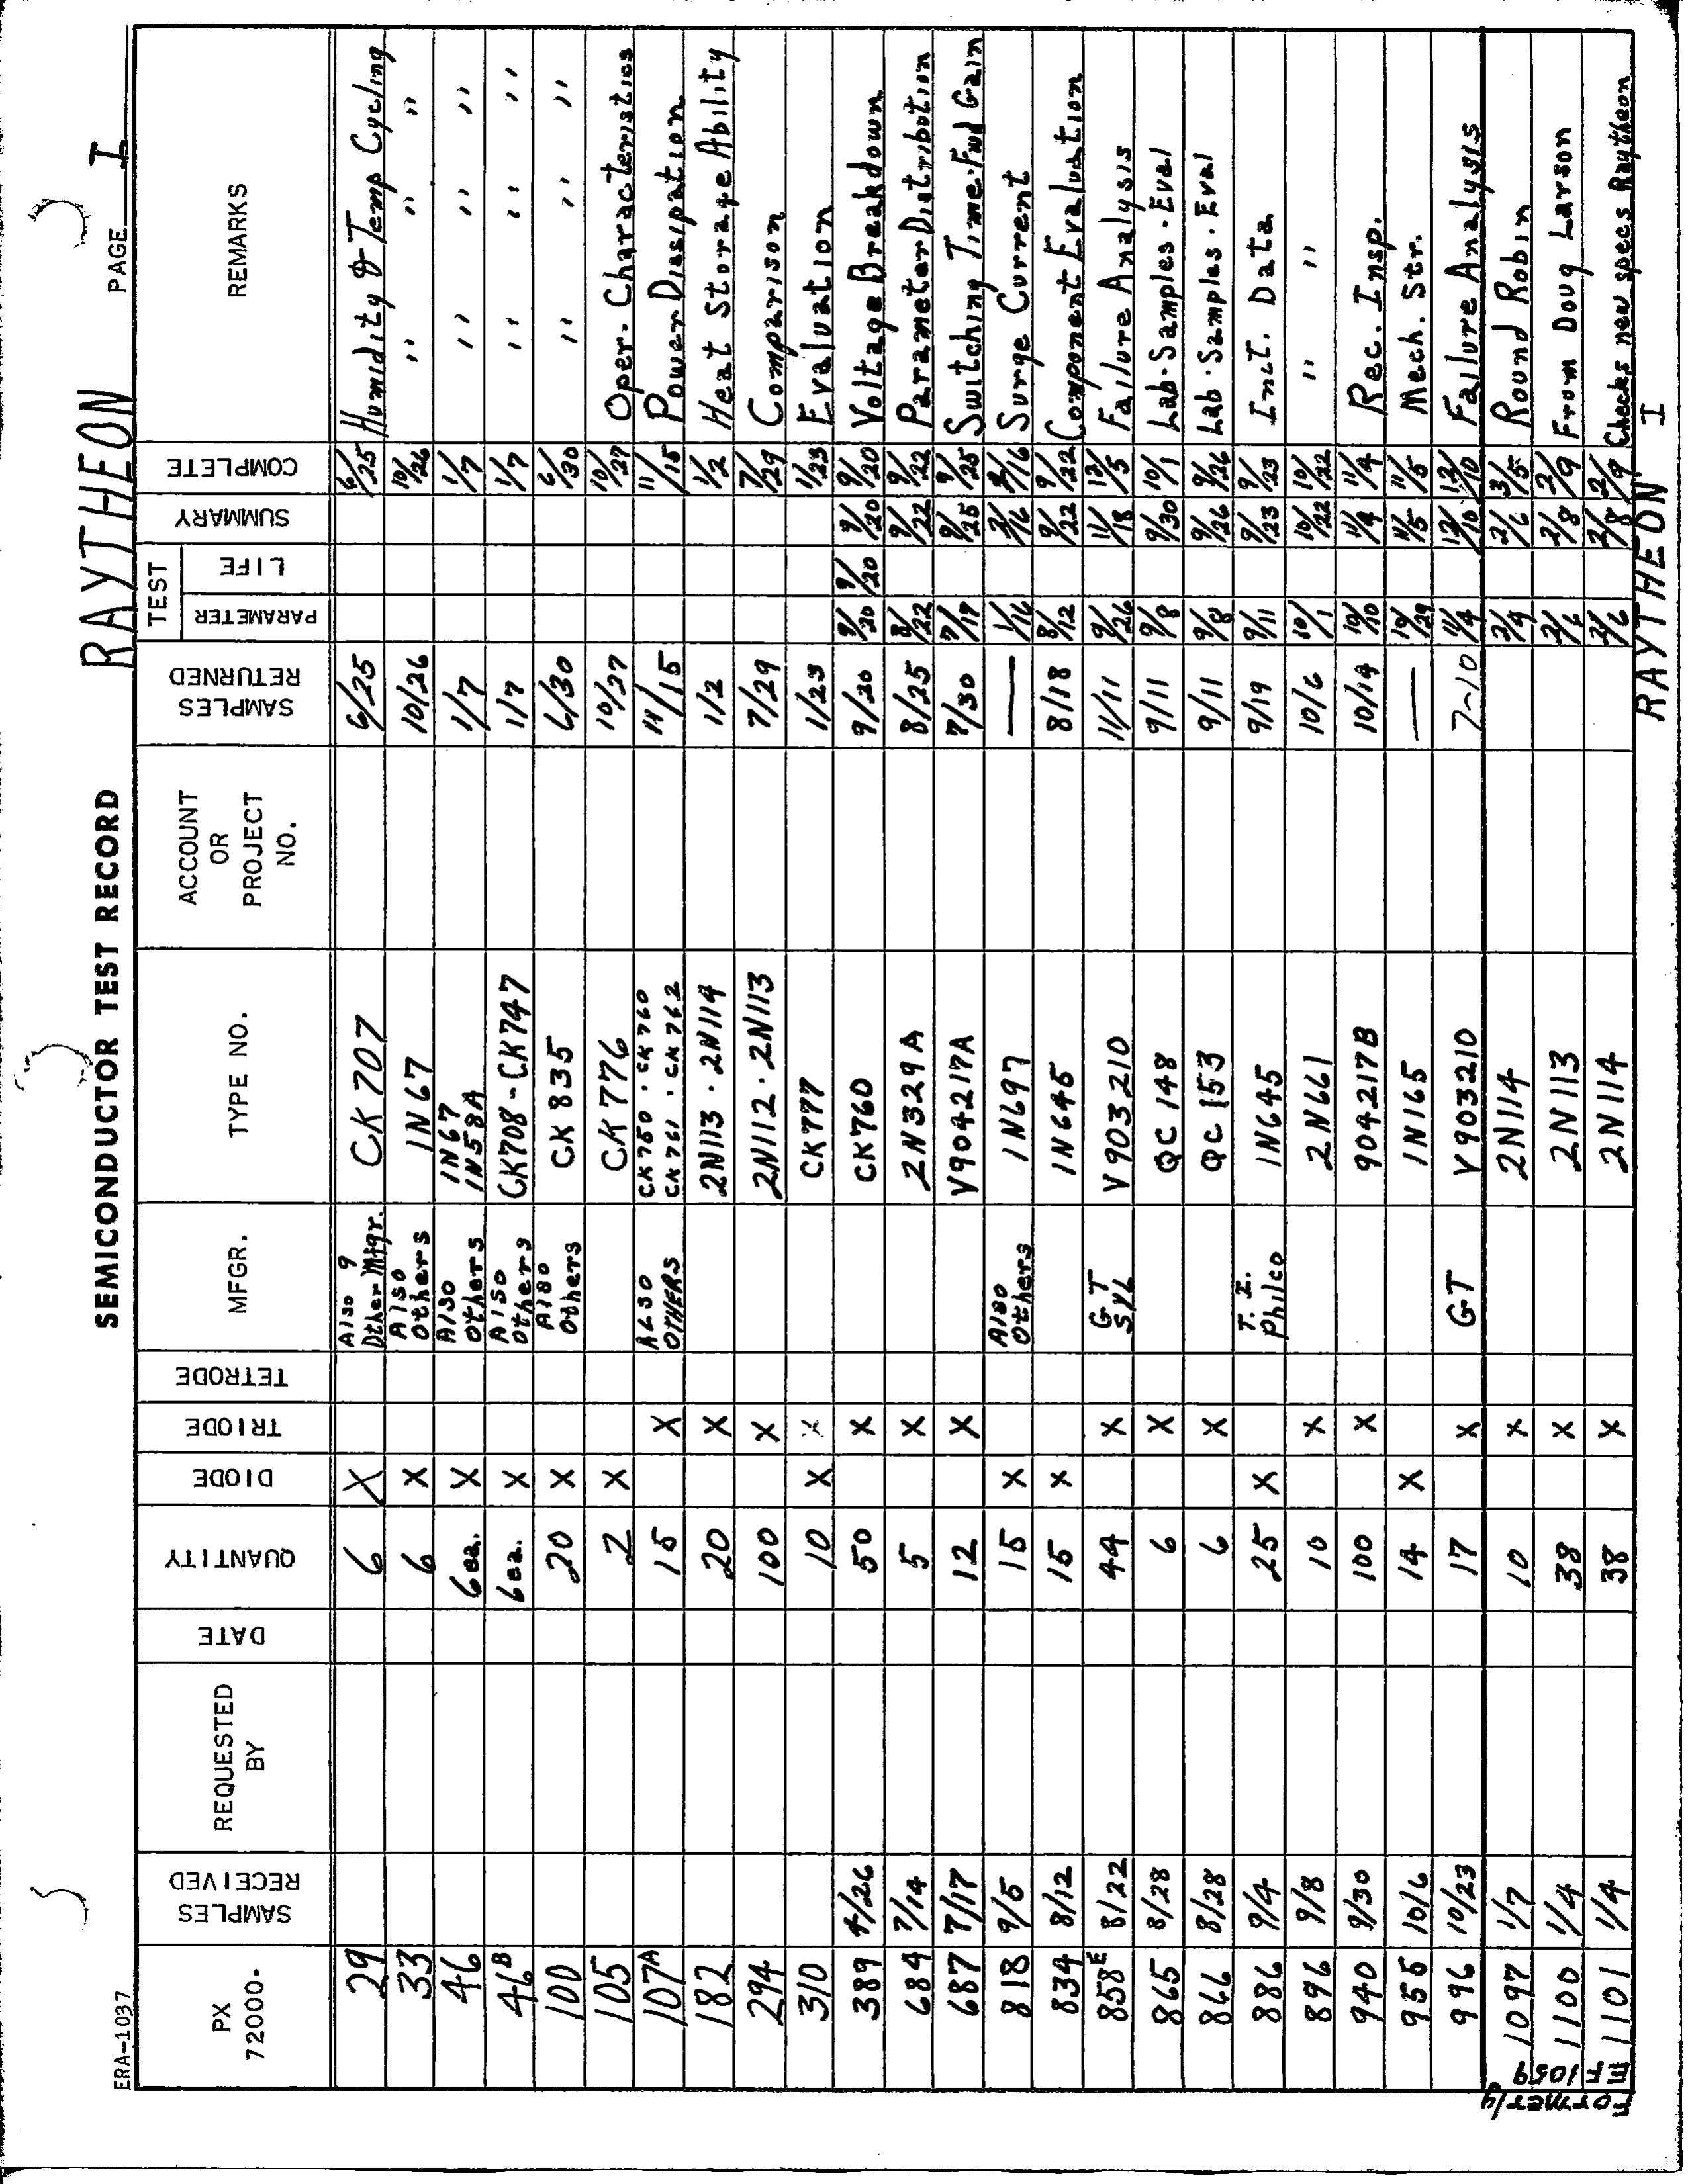 ERA-1037
SEMICONDUCTOR TEST RECORD
RAYTHEON
PAGE I
PX 72000. SAMPLES RECEIVED REQUESTED BY DATE QUANTITY DIODE TRIODE TETRODE MFGR. TYPE NO. ACCOUNT OR PROJECT NO. SAMPLES RETURNED TEST PARAMETER LIFE SUMMARY COMPLETE REMARKS
29 6 X Also 9 Other Mfgr. CK707 6/25 6/25 Humidity & Temp Cycling
33 6 X Also Others 1N67 10/26 10/26 " " "
46 6ea. X Also Others 1N67 1N58A 1/7 1/7 " " "
46B 6ea. X Also Others CK708-CK747 1/7 1/7 " " "
100 20 X Also Others CK835 6/30 6/30 " " "
105 2 X CK776 10/27 10/27 Oper-Characteristics
107A 15 X ALSO OTHERS CK750 · CK760 CK761 · CK762 11/15 11/15 Power Dissipation
182 20 X 2N113 · 2N114 1/2 1/2 Heat Storage Ability
294 100 X 2N112 · 2N113 7/29 7/29 Comparison
310 10 X X CK777 1/23 1/23 Evaluation
389 4/26 50 X CK760 9/20 9/20 9/20 9/20 9/20 Voltage Breakdown
684 7/14 5 X 2N329A 8/25 8/22 9/22 9/22 Parameter Distribution
687 7/17 12 X V904217A 7/30 7/17 9/25 9/25 Switching Time·Fwd Gain
818 9/5 15 X Also Others 1N697 — 1/16 2/16 2/16 Surge Current
834 8/12 15 X 1N645 8/18 8/12 9/22 9/22 Component Evaluation
858E 8/22 44 X GT SYL V903210 11/11 9/26 11/18 12/5 Failure Analysis
865 8/28 6 X QC148 9/11 9/8 9/30 10/1 Lab·Samples·Eval
866 8/28 6 X QC153 9/11 9/8 9/26 9/26 Lab·Samples·Eval
886 9/4 25 X T.I. Philco 1N645 9/19 9/11 9/23 9/23 Init. Data
896 9/8 10 X 2N661 10/6 10/1 10/22 10/22 " "
940 9/30 100 X 904217B 10/14 10/10 11/4 11/4 Rec. Insp.
955 10/6 14 X 1N165 — 10/29 11/5 11/5 Mech. Str.
996 10/23 17 X GT V903210 7-10 11/4 12/10 12/10 Failure Analysis
1097 1/7 10 X 2N114 2/4 2/6 3/5 Round Robin
1100 1/4 38 X 2N113 2/6 2/8 2/9 From Doug Larson
1101 1/4 38 X 2N114 2/6 2/8 2/9 Checks new specs Raytheon
Formerly
EF1059
RAYTHEON I